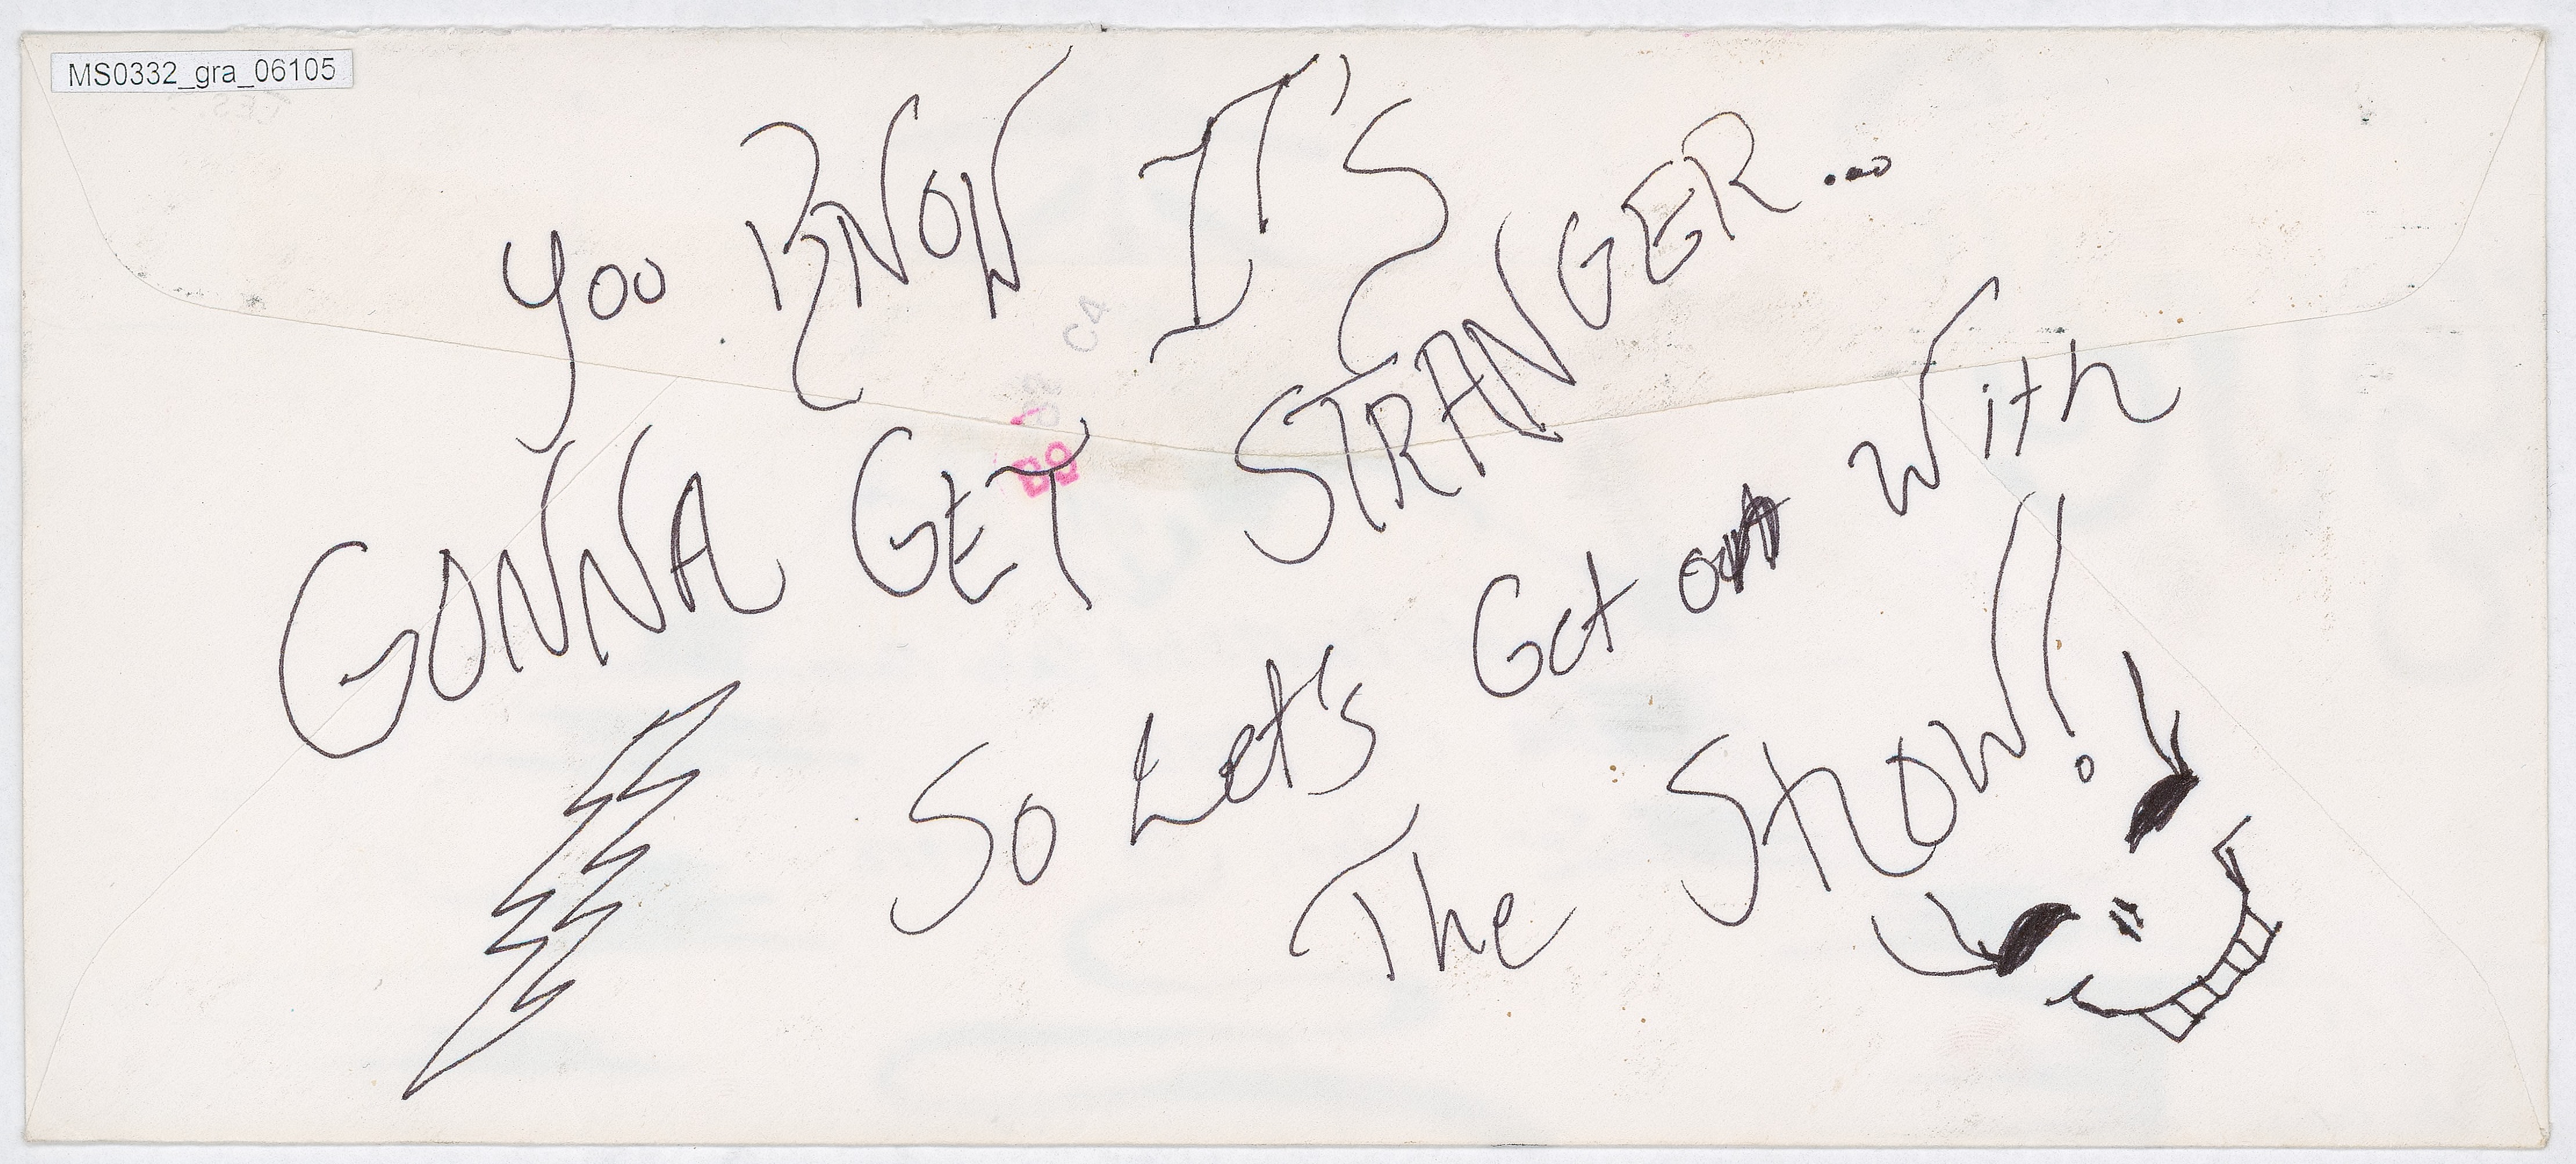 MS0332_gra_06105
You KNOW IT'S
GONNA GET STRANGER...
So Let's Get on With
The SHOW!
C4